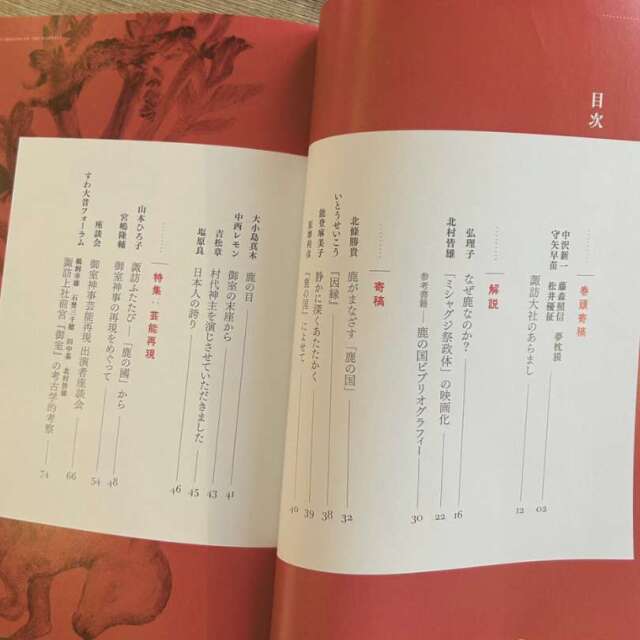 目次
巻頭寄稿
中沢新一 藤森照信 夢枕獏
守矢早苗 松井優征
02
諏訪大社のあらまし
12
解説
弘理子
なぜ鹿なのか?
16
北村皆雄
「ミシャグジ祭政体」の映画化
22
参考書籍 鹿の国ビブリオグラフィー
30
寄稿
北條勝貴
鹿がまなざす「鹿の国」
32
いとうせいこう
『因縁』
38
能登麻美子
静かに深くあたたかく
39
『鹿の国』によせて
40
大小島真木
鹿の目
41
中西レモン
御室の末座から
43
吉松章
村代神主を演じさせていただきました
45
塩原良
日本人の誇り
46
特集:芸能再現
山本ひろ子
諏訪ふたたび 「鹿の國」から
48
宮嶋隆輔
御室神事の再現をめぐって
54
座談会
御室神事芸能再現 出演者座談会
66
すわ大昔フォーラム
石埜三千穂 田中基 北村皆雄
諏訪上社前宮『御室』の考古学的考察
74